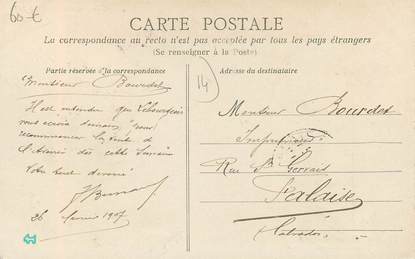 60 €
CARTE POSTALE
La correspondance au recto n'est pas acceptée par tous les pays étrangers
(Se renseigner à la Poste)
Partie réservée à la correspondance
Adresse du destinataire
14
Monsieur Bourdet
Il est entendu que
vous
recommencer la
des cette semaine
Votre tout dévoué
26 1907
Monsieur Bourdet
Imprimeur
Rue St Gervais
Falaise
Calvados